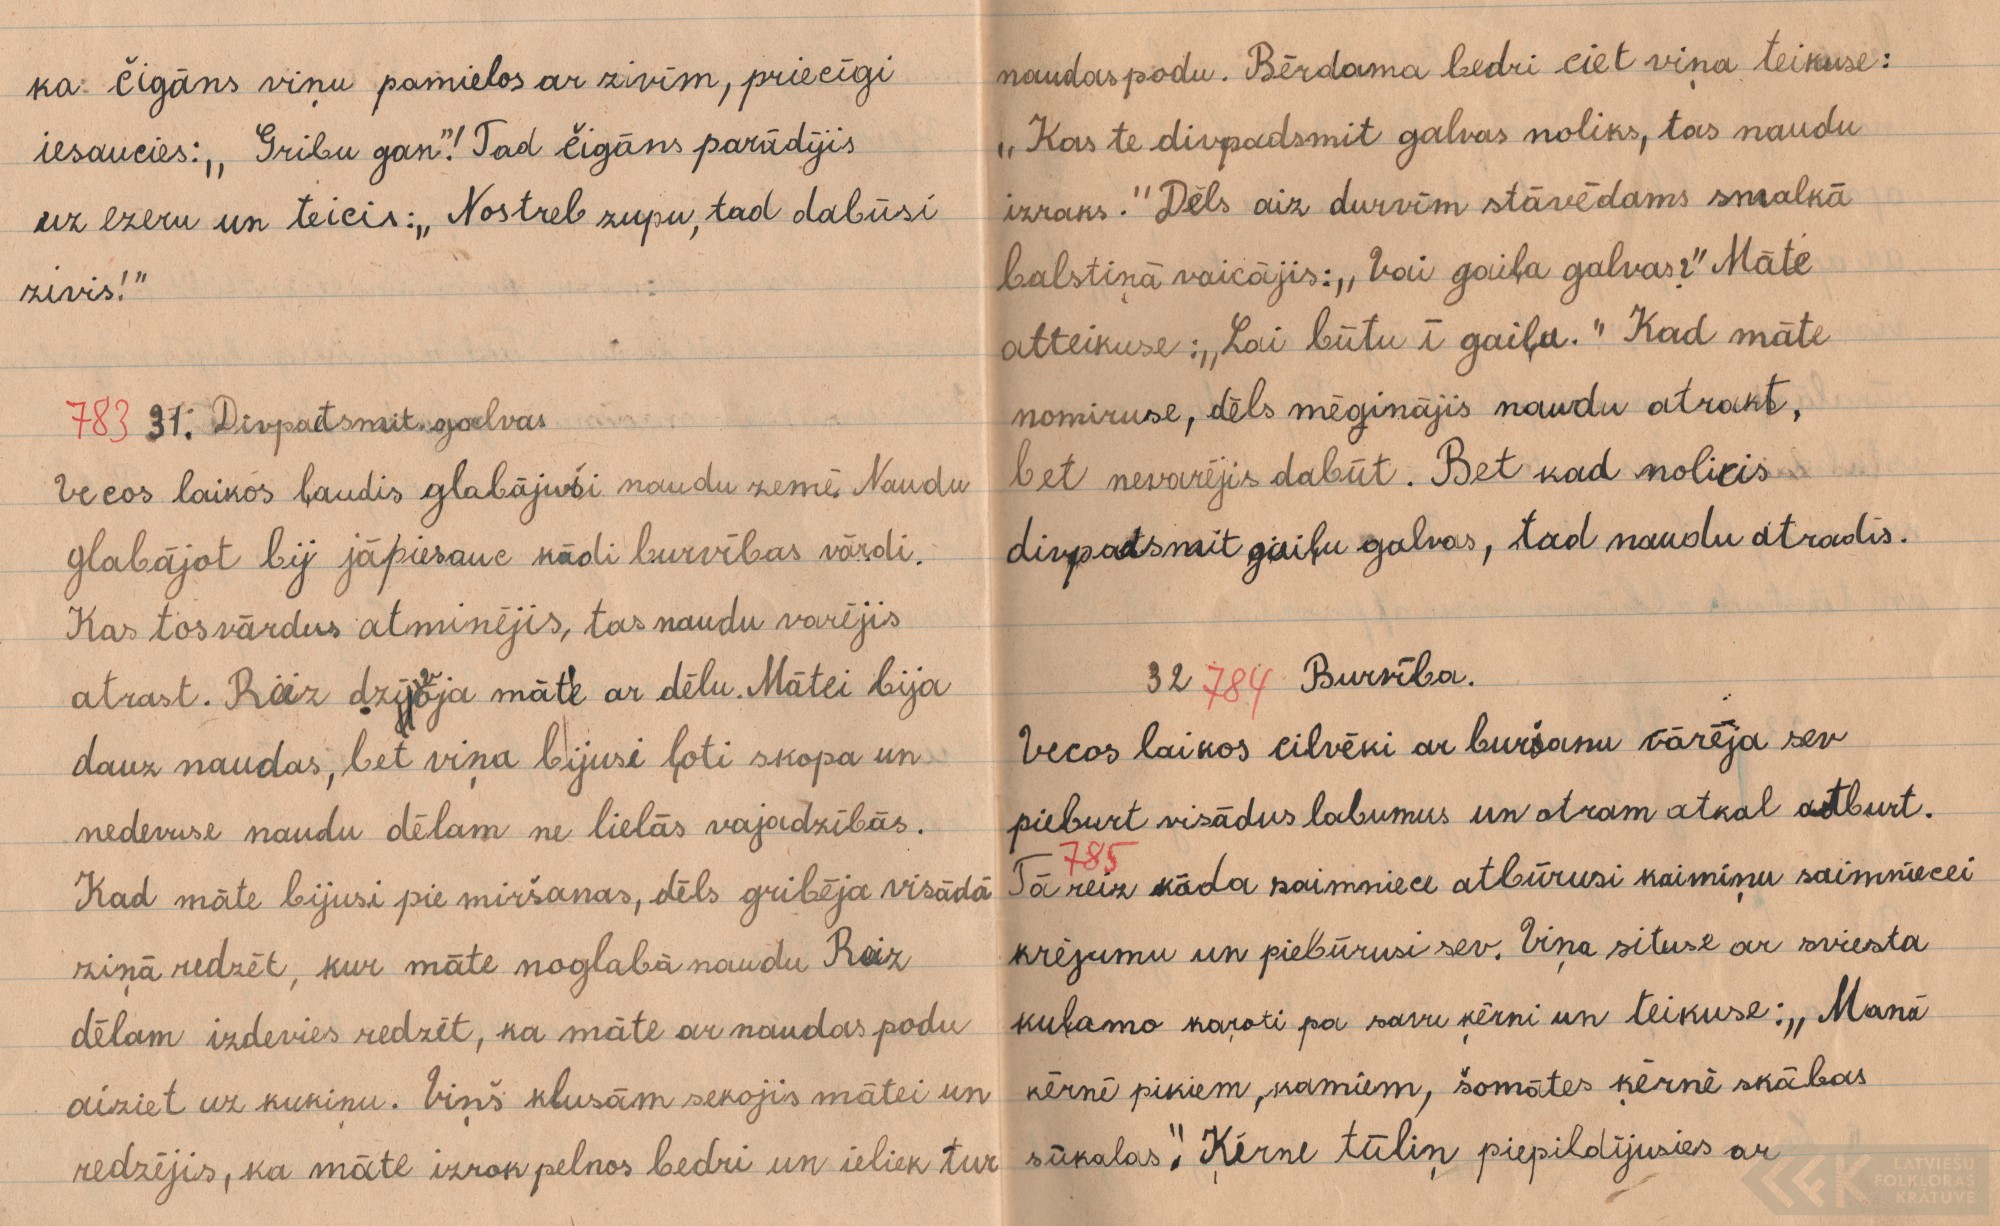 ka čigāns viņu pamielos ar zivīm, priecīgi
iesaucies:,, Gribu gan"! Tad čigāns parādījis
uz ezeru un teicis:,, Nostreb zupu, tad dabūsi
zivis!"
783 31. Divpadsmit galvas
Vecos laikos ļaudis glabājuši naudu zemē. Naudu
glabājot bij jāpiesauc kādi burvības vārdi.
Kas tos vārdus atminējis, tas naudu varējis
atrast. Reiz dzīvoja māte ar dēlu. Mātei bija
dauz naudas, bet viņa bijusi ļoti skopa un
nedevuse naudu dēlam ne lielās vajadzībās.
Kad māte bijusi pie miršanas, dēls gribēja visādā
ziņā redzēt, kur māte noglabā naudu Reiz
dēlam izdevies redzēt, ka māte ar naudas podu
aiziet uz kukiņu. Viņš klusām sekojis mātei un
redzējis, ka māte izrok pelnos bedri un ieliek tur
naudas podu. Bērdama bedri ciet viņa teikuse:
,, Kas te divpadsmit galvas noliks, tas naudu
izraks." Dēls aiz durvīm stāvēdams smalkā
balstiņā vaicājis:,, Vai gaiļa galvas?" Māte
atteikuse:,, Lai būtu ī gaiļu." Kad māte
nomiruse, dēls mēginājis naudu atrakt,
bet nevarējis dabūt. Bet kad nolicis
divpadsmit gaiļu galvas, tad naudu atradis.
32 784 Burvība.
Vecos laikos cilvēki ar buršanu vārēja sev
pieburt visādus labumus un otram atkal atburt.
785
Tā reiz kāda saimniece atbūrusi kaimiņu saimniecei
krējumu un piebūrusi sev. Viņa situse ar sviesta
kuļamo kaŗoti pa savu ķērni un teikuse:,, Manā
ķērnē pikiem, kamiem, šomātes ķērnē skābas
sūkalas". Ķērne tūliņ piepildījusies ar
LATVIEŠU
FOLKLORAS
KRĀTUVE